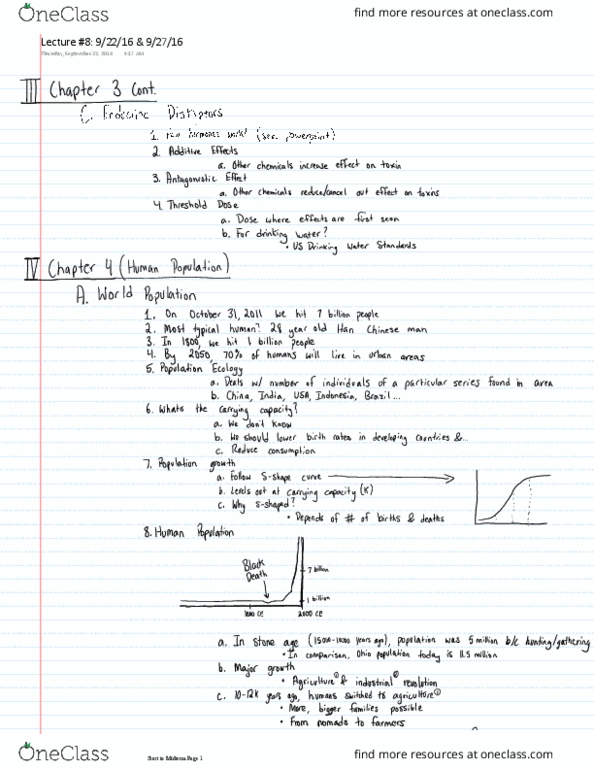 OneClass
find more resources at oneclass.com
Lecture #8: 9/22/16 & 9/27/16
Thursday, September 22, 2016 9:37 AM
III Chapter 3 Cont.
C. Endocrine Distriptors
1. How hormones work? (see powerpoint)
2. Additive Effects
a. Other chemicals increase effect on toxin
3. Antagonistic Effect
a. Other chemicals reduce/cancel out effect on toxins
4. Threshold Dose
a. Dose where effects are first seen
b. For drinking water?
• US Drinking Water Standards
IV Chapter 4 (Human Population)
A. World Population
1. On October 31, 2011 we hit 7 billion people
2. Most typical human? 28 year old Han Chinese man
3. In 1800, we hit 1 billion people
4. By 2050, 70% of humans will live in urban areas
5. Population Ecology
a. Deals w/ number of individuals of a particular series found in area
b. China, India, USA, Indonesia, Brazil...
6. Whats the carrying capacity?
a. We don't know
b. We should lower birth rates in developing countries &...
c. Reduce consumption
7. Population growth
a. Follow S-shape curve
b. Levels out at carrying capacity (K)
c. Why S-shaped?
• Depends of # of births & deaths
8. Human Population
Black Death
7 billion
1 billion
1000 CE
2000 CE
a. In stone age ( years ago), population was 5 million b/c hunting/gathering
• In comparison, Ohio population today is 11.5 million
b. Major growth
• Agriculture① & industrial② revolution
c. 10-12K years ago, humans switched to agriculture①
• More, bigger families possible
• From nomads to farmers
OneClass
Start to Midterm Page 1
find more resources at oneclass.com